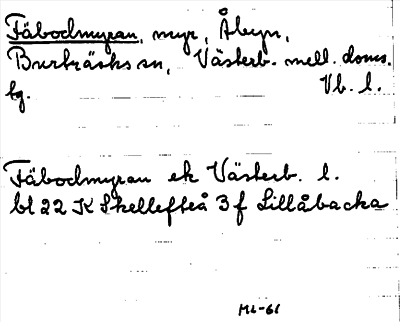 Fäbodmyran, myr, Åbyn,
Burträsks sn, Västerb. mell. doms.
tg. Vb. l.
Fäbodmyran ek Västerb. l.
bl 22 K Skellefteå 3 f Lillåbacka
ML-61